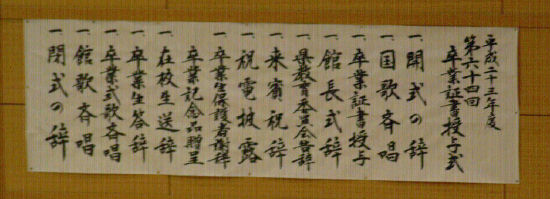 平成二十三年度
第六十四回
卒業証書授与式
一、開式の辞
一、国歌斉唱
一、卒業証書授与
一、館長式辞
一、県教育委員会告辞
一、来賓祝辞
一、祝電披露
一、卒業生保護者謝辞
卒業記念品贈呈
一、在校生送辞
一、卒業生答辞
一、卒業式歌斉唱
一、館歌斉唱
一、閉式の辞